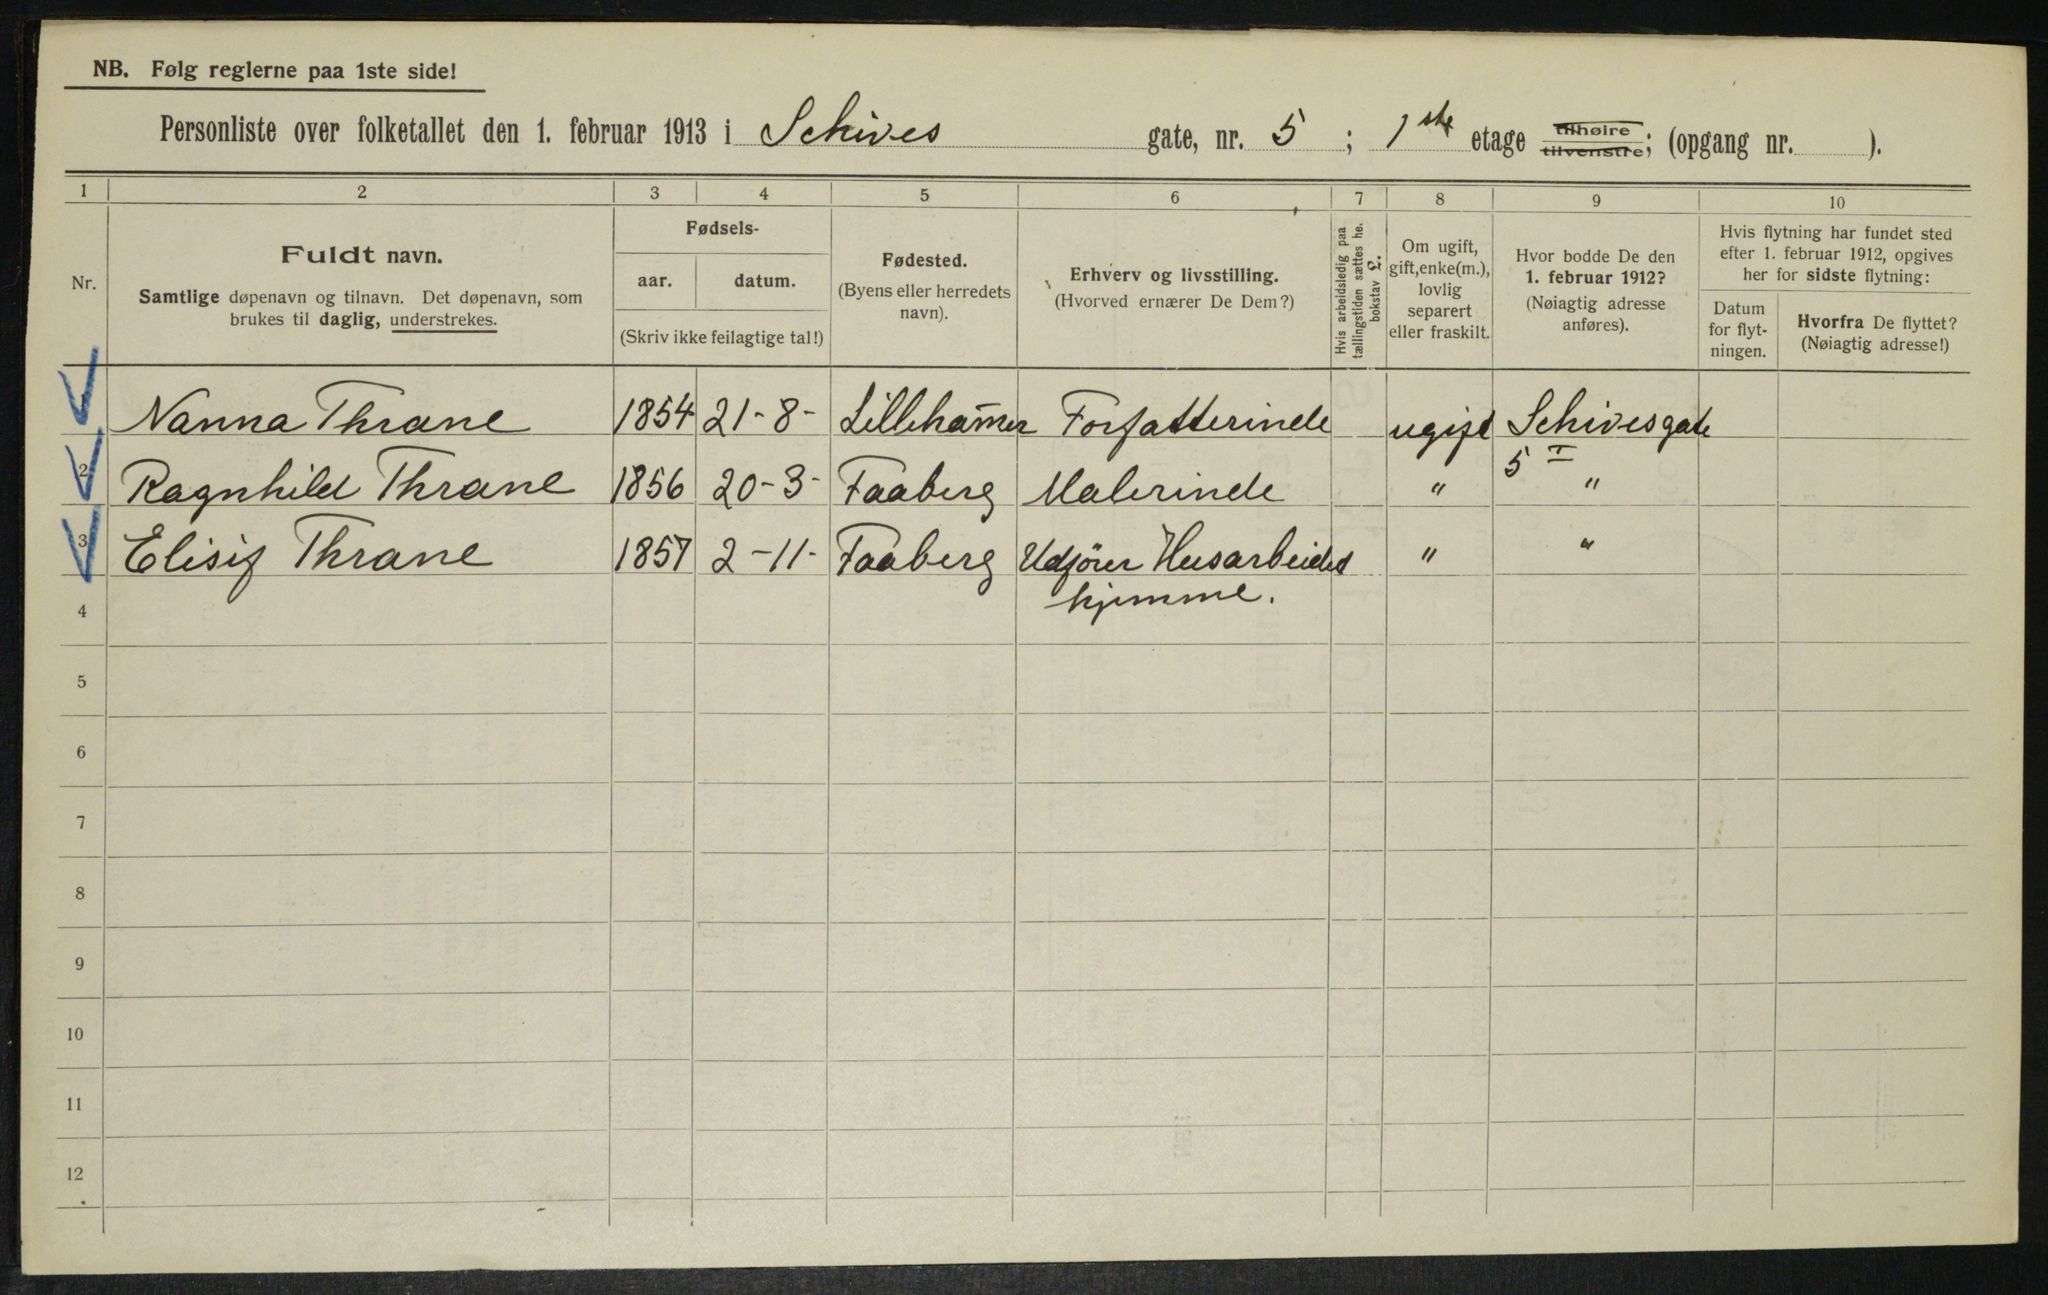 NB. Følg reglerne paa 1ste side!
Personliste over folketallet den 1. februar 1913 i Schives gate, nr. 5 ; 1ste etage tilhøire tilvenstre; (opgang nr. ).
1 2 3 4 5 6 7 8 9 10
Nr.
Fuldt navn.
Samtlige døpenavn og tilnavn. Det døpenavn, som
brukes til daglig, understrekes.
Fødsels-
aar. datum.
(Skriv ikke feilagtige tal!)
Fødested.
(Byens eller herredets
navn).
Erhverv og livsstilling.
(Hvorved ernærer De Dem?)
Hvis arbeidsledig paa
tællingstiden sættes he.
bokstav L.
Om ugift,
gift,enke(m.),
lovlig
separert
eller fraskilt.
Hvor bodde De den
1. februar 1912?
(Nøiagtig adresse
anføres).
Hvis flytning har fundet sted
efter 1. februar 1912, opgives
her for sidste flytning:
Datum
for flyt-
ningen.
Hvorfra De flyttet?
(Nøiagtig adresse!)
Nanna Thrane 1854 21-8- Lilleham̄er Forfatterinde ugift Schivesgate
5 I
2 Ragnhild Thrane 1856 20-3- Faaberg Malerinde " "
3 Elisif Thrane 1857 2-11- Faaberg Udfører Husarbeidet " "
hjemme.
4
5
6
7
8
9
10
11
12